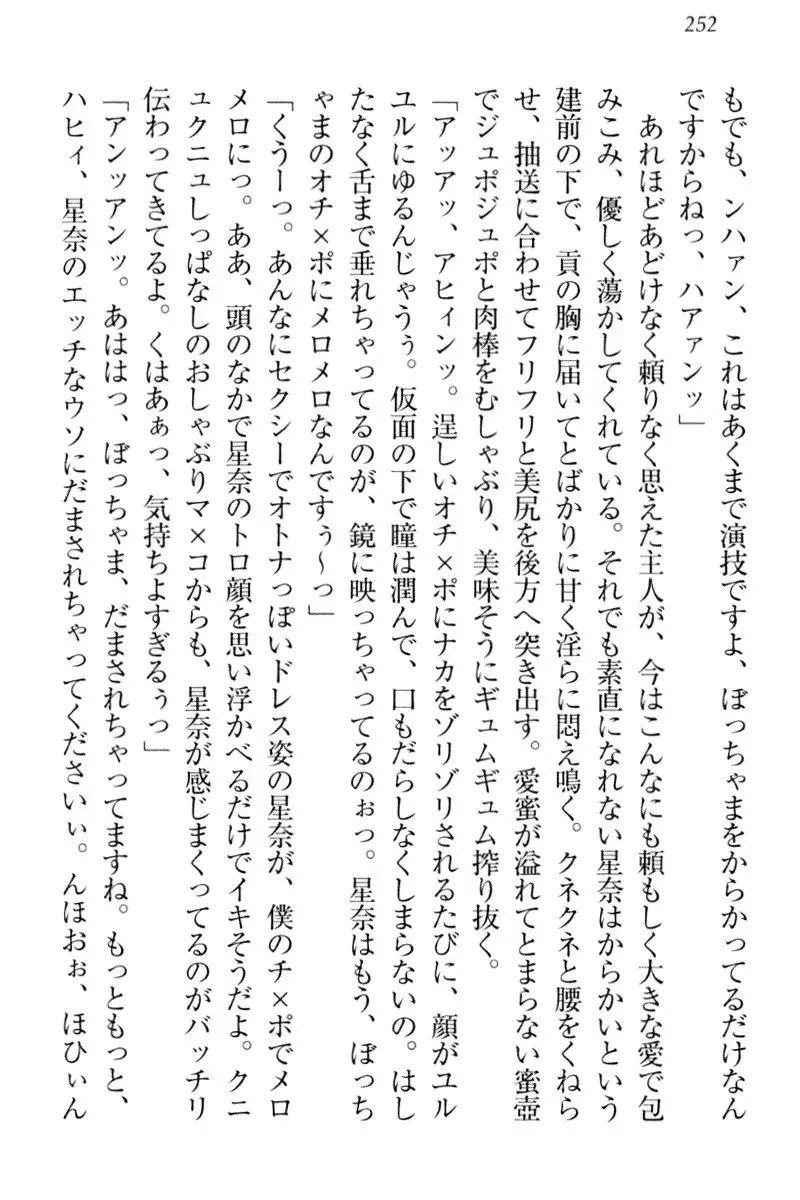 252
もでも、ンハァン、これはあくまで演技ですよ、ぼっちゃまをからかってるだけなん
ですからねっ、ハアァンッ」
　あれほどあどけなく頼りなく思えた主人が、今はこんなにも頼もしく大きな愛で包
みこみ、優しく蕩かしてくれている。それでも素直になれない星奈はからかいという
建前の下で、貢の胸に届いてとばかりに甘く淫らに悶え鳴く。クネクネと腰をくねら
せ、抽送に合わせてフリフリと美尻を後方へ突き出す。愛蜜が溢れてとまらない蜜壺
でジュポジュポと肉棒をむしゃぶり、美味そうにギュムギュム搾り抜く。
「アッアッ、アヒィンッ。逞しいオチ×ポにナカをゾリゾリされるたびに、顔がユル
ユルにゆるんじゃうぅ。仮面の下で瞳は潤んで、口もだらしなくしまらないの。はし
たなく舌まで垂れちゃってるのが、鏡に映っちゃってるのぉっ。星奈はもう、ぼっち
ゃまのオチ×ポにメロメロなんですぅ〜っ」
「くうーっ。あんなにセクシーでオトナっぽいドレス姿の星奈が、僕のチ×ポでメロ
メロにっ。ああ、頭のなかで星奈のトロ顔を思い浮かべるだけでイキそうだよ。クニ
ュクニュしっぱなしのおしゃぶりマ×コからも、星奈が感じまくってるのがバッチリ
伝わってきてるよ。くはあぁっ、気持ちよすぎるぅっ」
「アンッアンッ。あははっ、ぼっちゃま、だまされちゃってますね。もっともっと、
ハヒィ、星奈のエッチなウソにだまされちゃってくださいぃ。んほおぉ、ほひぃん